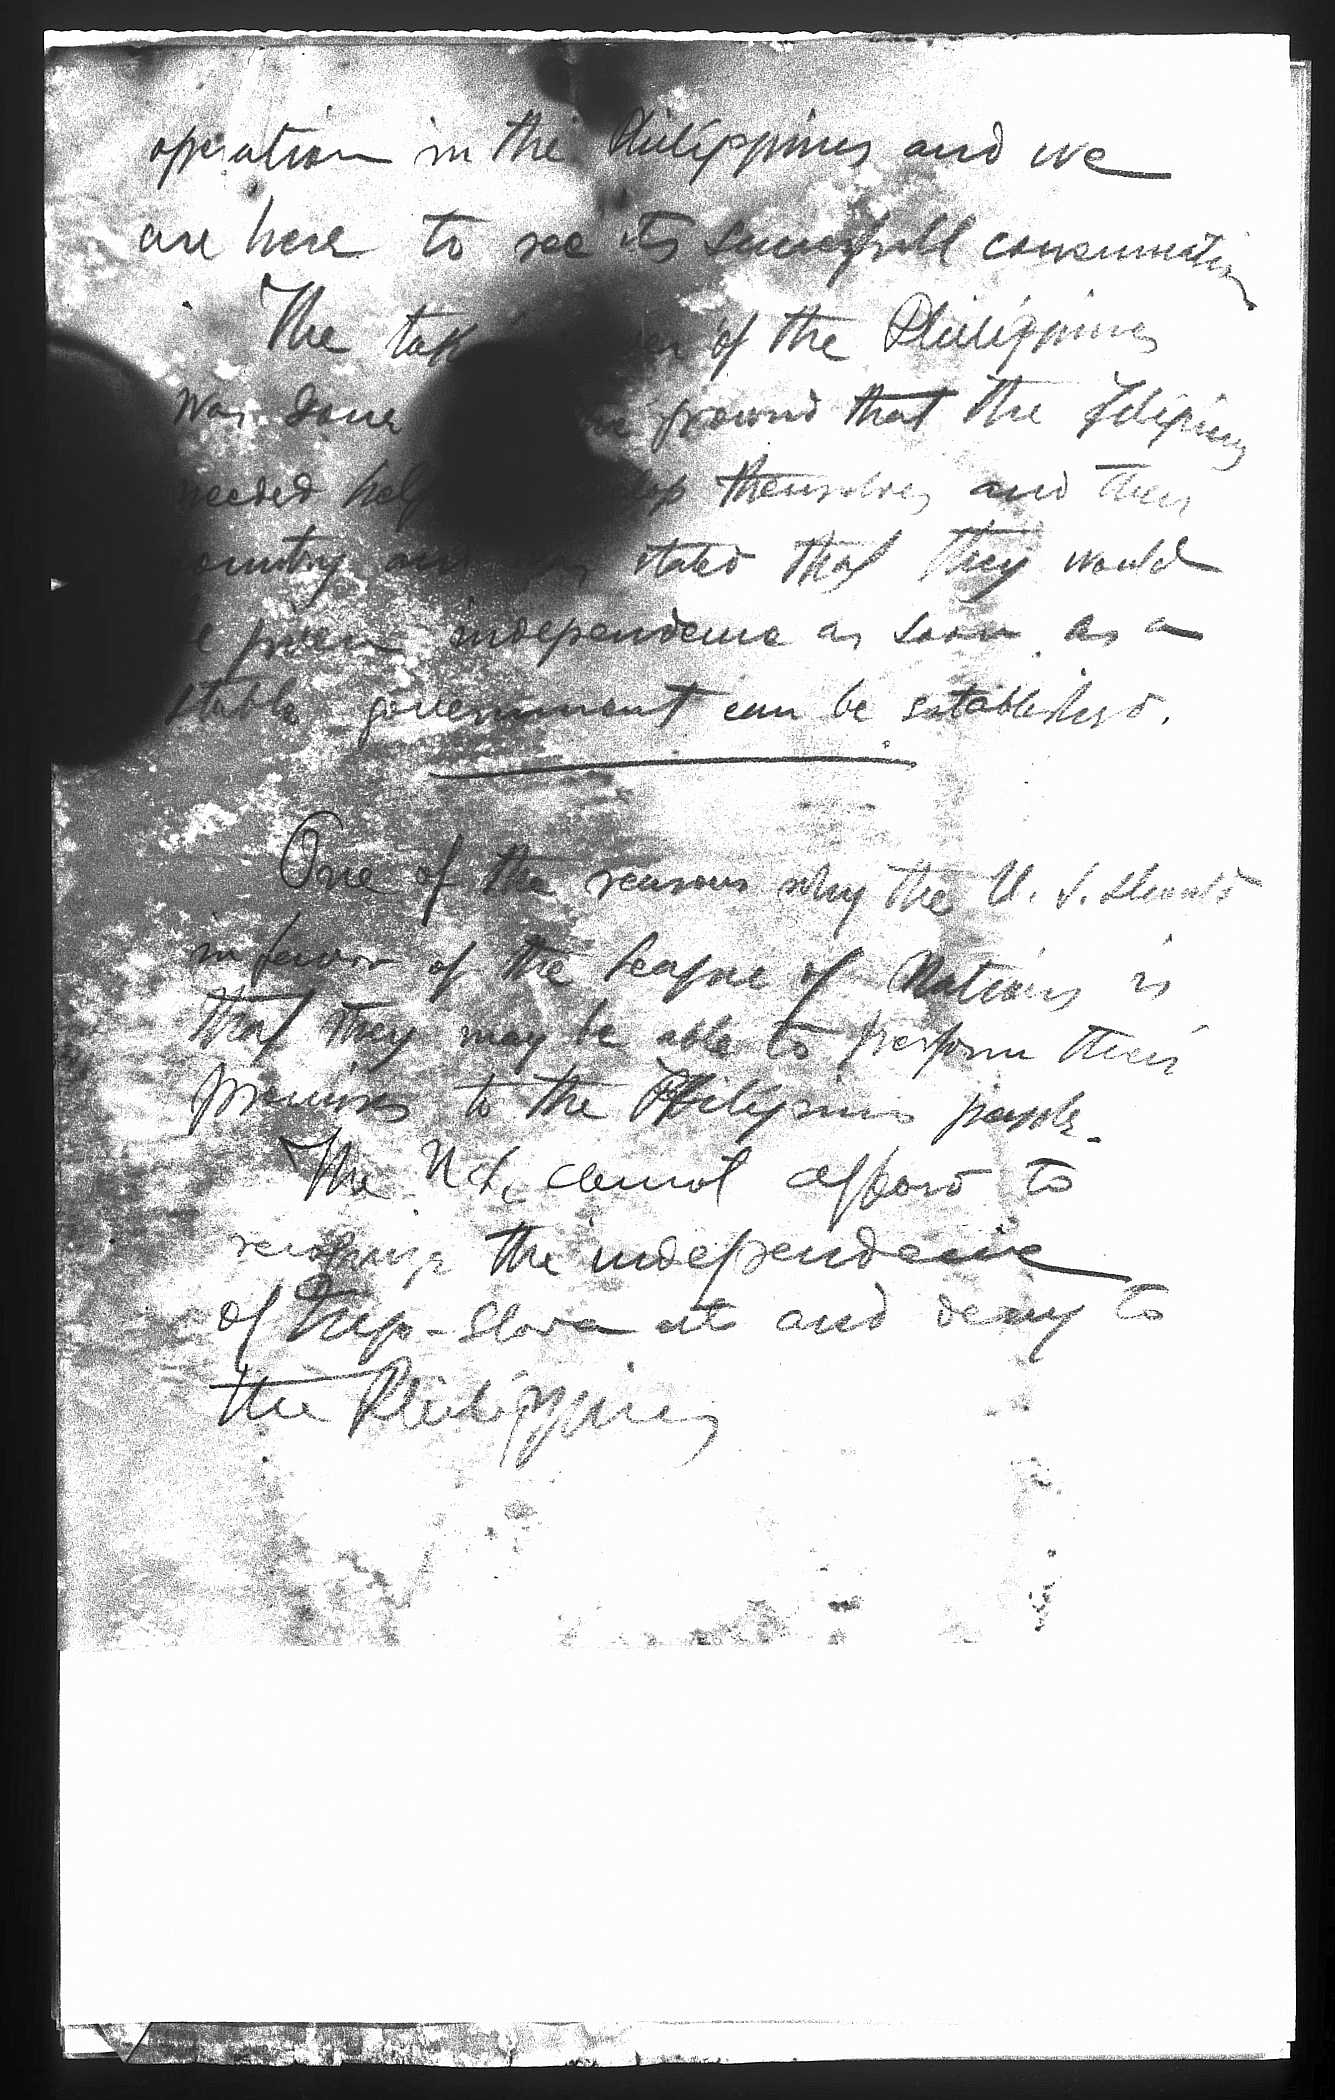 operation in the Philippines and we
are here to see its successfull consumation
The of the Philippines
was done ground that the Filipinos
needed help themselves and their
country and stated that they would
given independence as soon as a
stable government can be established.
One of the reasons why the U. S. should
in favor of the League of Nations is
that they may be able to perform their
promises to the Philippines people.
The cannot afford to
recognize the independence
of Jugo-Slava etc and deny to
the Philippines